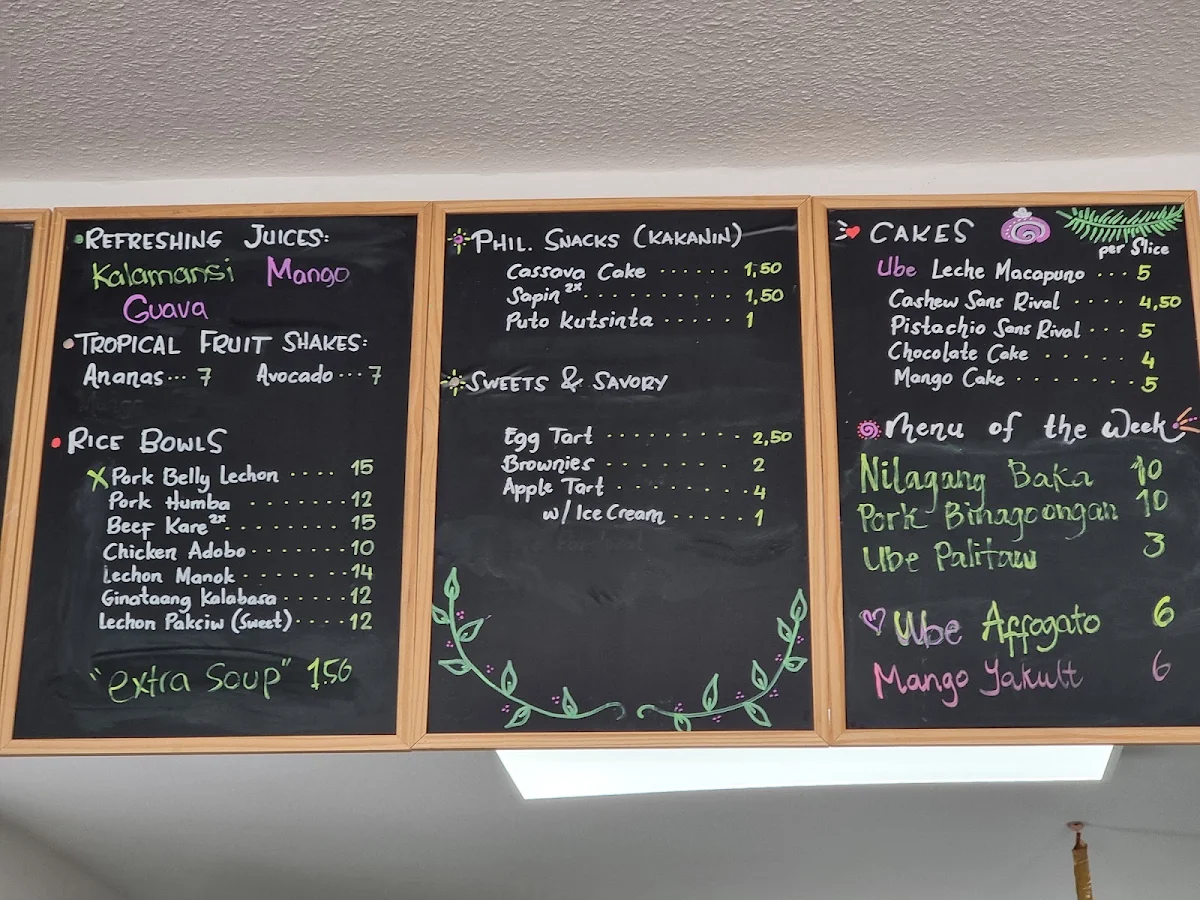 REFRESHING JUICES:
Kalamansi Mango
Guava
TROPICAL FRUIT SHAKES:
Ananas ... 7 Avocado ... 7
RICE BOWLS
X Pork Belly Lechon .... 15
Pork Humba ........ 12
Beef Kare 2x ........ 15
Chicken Adobo ....... 10
Lechon Manok ....... 14
Ginataang Kalabasa .... 12
Lechon Paksiw (Sweet) .... 12
"extra Soup" 1.50
PHIL. SNACKS (KAKANIN)
Cassava Cake ...... 1,50
Sapin 2x .......... 1,50
Puto Kutsinta ...... 1
SWEETS & SAVORY
Egg Tart ......... 2,50
Brownies ......... 2
Apple Tart ........ 4
w/ Ice Cream ...... 1
CAKES
per Slice
Ube Leche Macapuno ... 5
Cashew Sans Rival .... 4,50
Pistachio Sans Rival ... 5
Chocolate Cake ...... 4
Mango Cake ........ 5
Menu of the Week
Nilagang Baka 10
Pork Binagoongan 10
Ube Palitaw 3
Ube Affogato 6
Mango Yakult 6